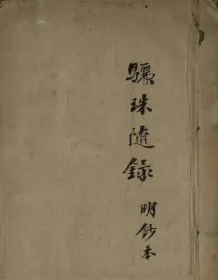 驪珠隨錄
明鈔本